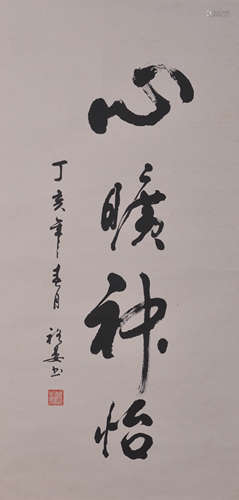 心曠神怡
丁亥年春月